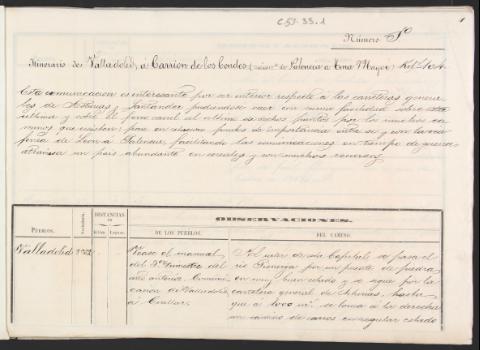 C.53-33-1
Número 8º
Itinerario de Valladolid, a Carrion de los Condes
Esta comunicacion es interesante por ser interior respecto a las carreteras genera-
les de Asturias y Santander pudiendose caer con suma facilidad sobre
ultima y sobre el ferro-carril al ultimo de dichos puntos por los muchos ca-
minos que existen; pasa en algunos puntos de importancia entre si y con la via
ferrea de Leon a Palencia, facilitando las comunicaciones en tiempo de guerra,
atraviesa un pais abundante en cereales y con muchos recursos
PUEBLOS.
DISTANCIAS
OBSERVACIONES.
DE LOS PUEBLOS.
DEL CAMINO.
Valladolid
Vease el manual
del trimestre del
año anterior
de Valladolid
a Cuellar.
Al salir de esta Capital se pasa el
rio Pisuerga por un puente de piedra
en muy buen estado y se sigue por la
carretera general de Asturias, hasta
que a 1000 m. se toma a la derecha
un camino de carros en regular estado